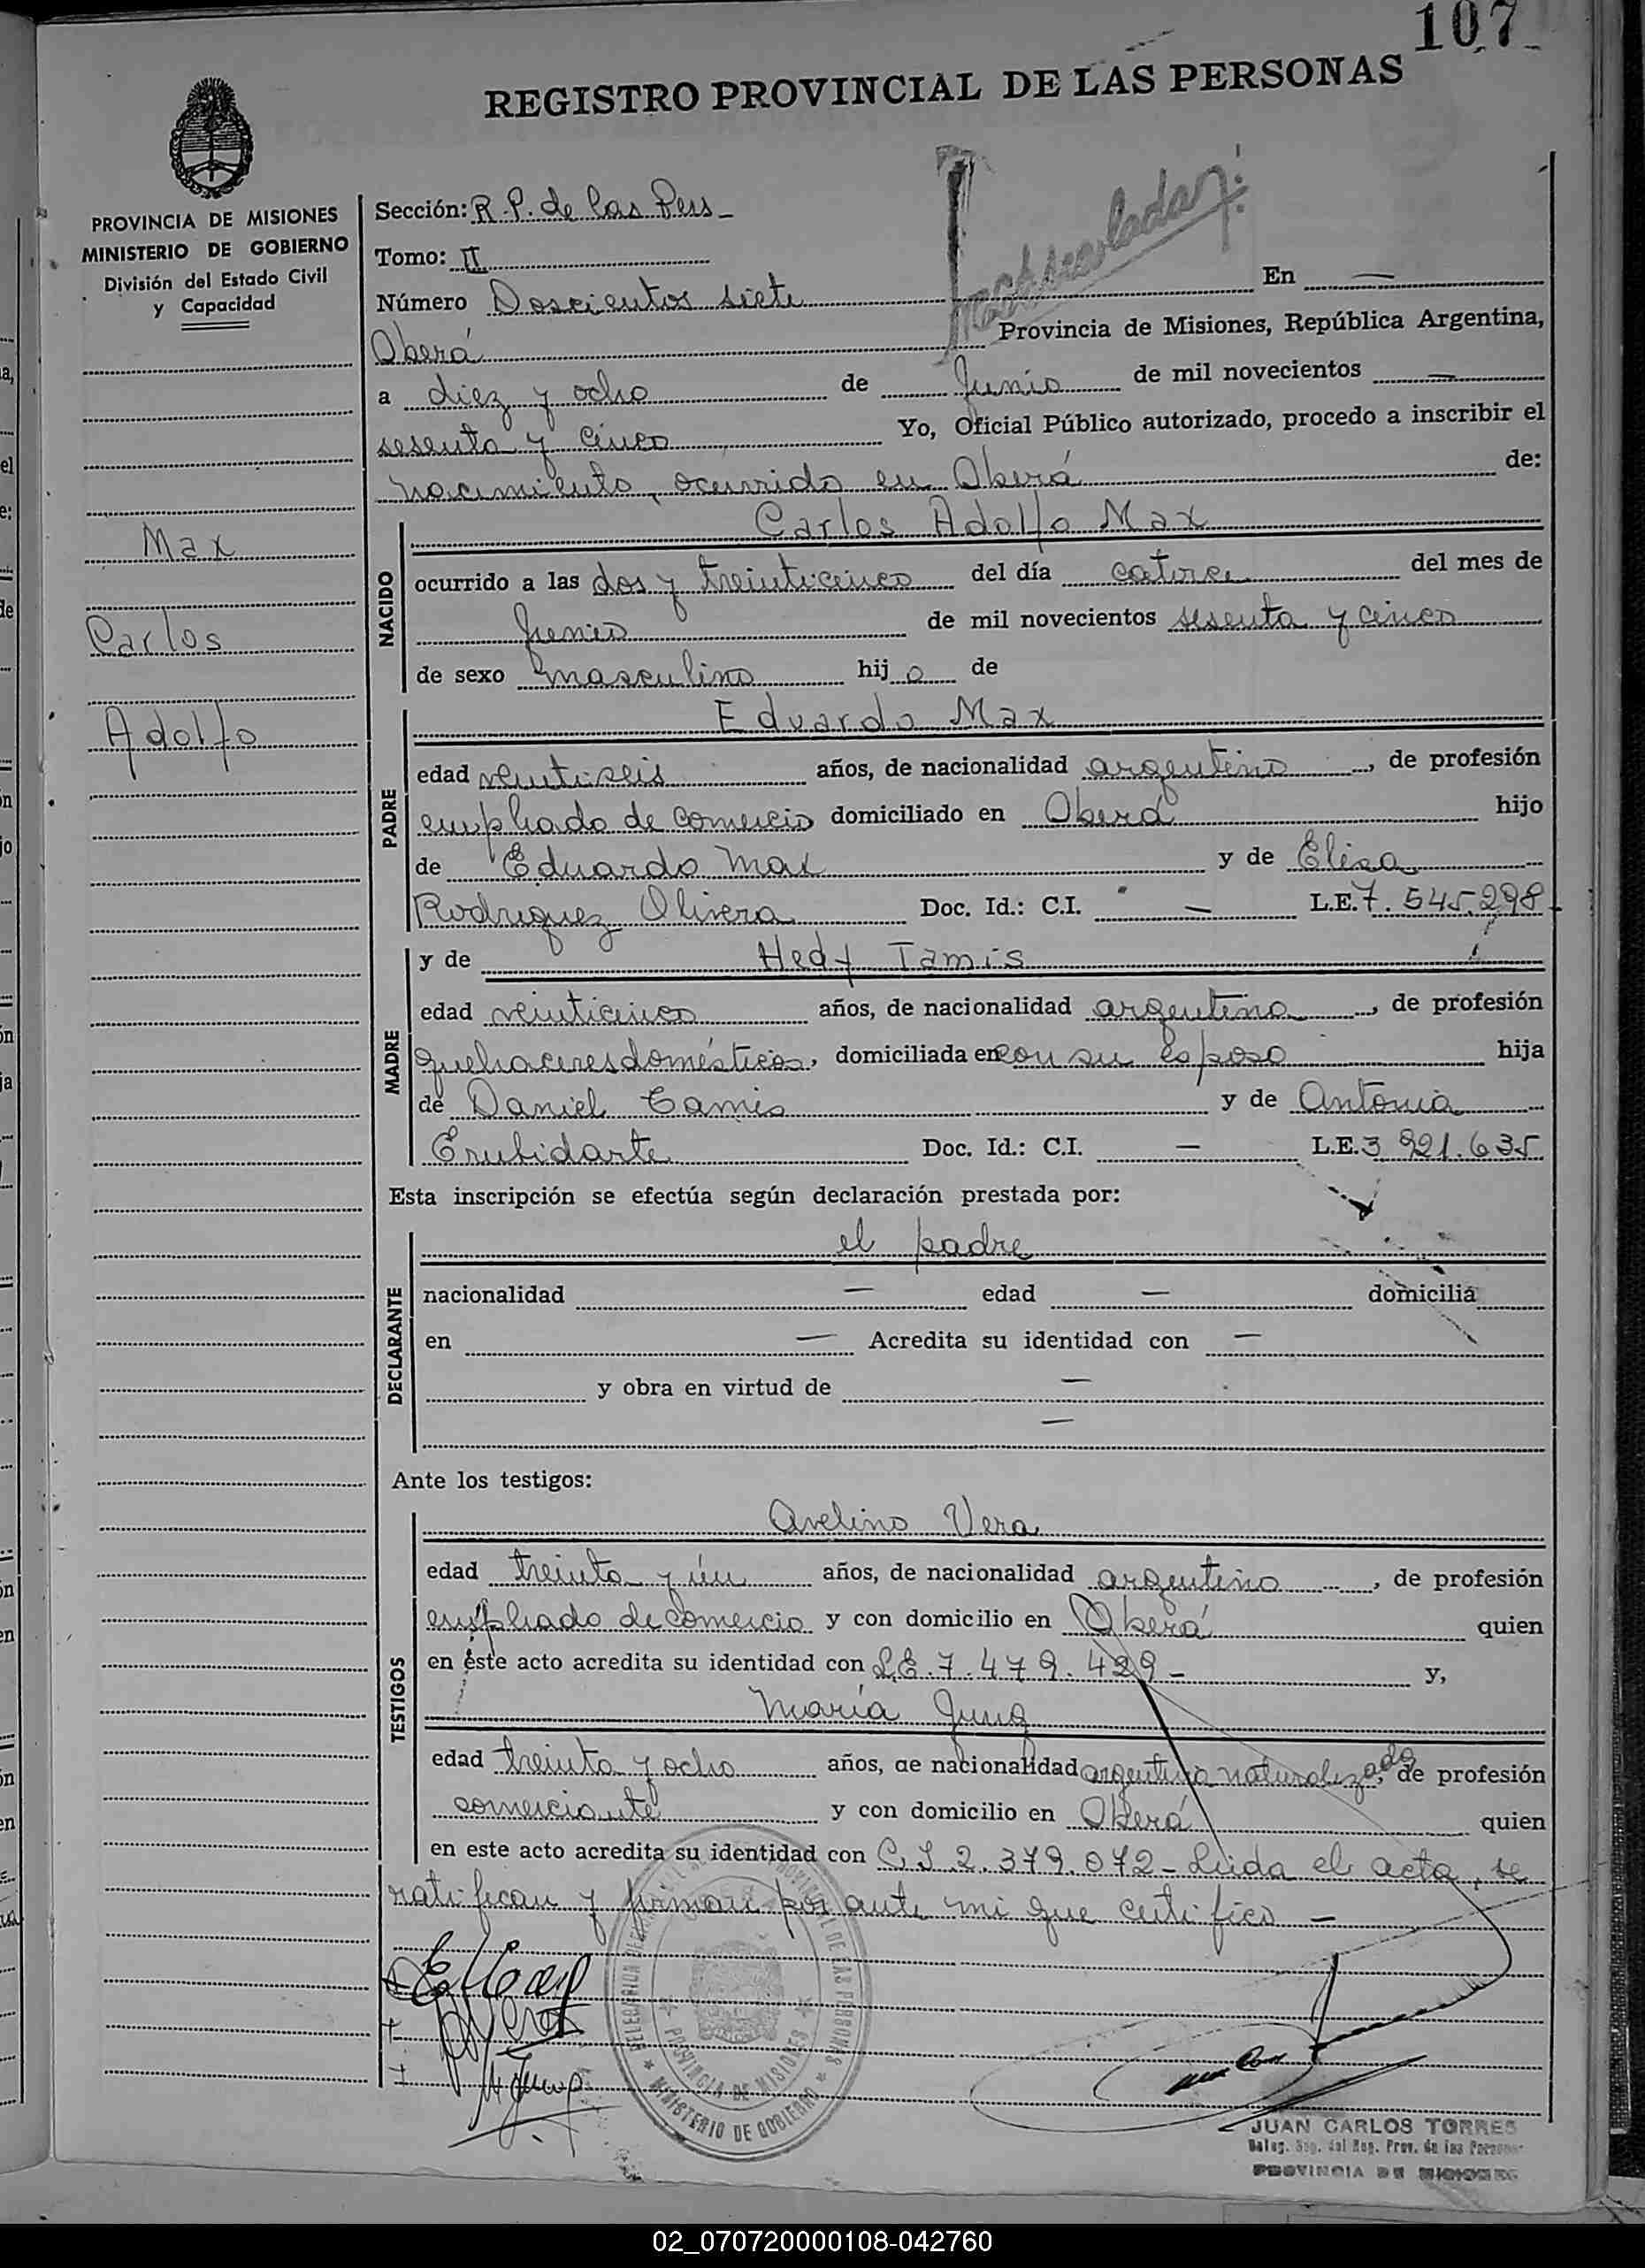 107
REGISTRO PROVINCIAL DE LAS PERSONAS
PROVINCIA DE MISIONES
MINISTERIO DE GOBIERNO
División del Estado Civil
y Capacidad
Max
Carlos
Adolfo
Sección: R.P. de las Pers
Tomo: II
Número Doscientos siete En —
Oberá Provincia de Misiones, República Argentina,
a diez y ocho de Junio de mil novecientos —
sesenta y cinco Yo, Oficial Público autorizado, procedo a inscribir el
nacimiento, ocurrido en Oberá de:
NACIDO
Carlos Adolfo Max
ocurrido a las dos y treinticinco del día catorce del mes de
Junio de mil novecientos sesenta y cinco
de sexo masculino hijo de
PADRE
Eduardo Max
edad veintiseis años, de nacionalidad argentino, de profesión
empleado de comercio domiciliado en Oberá hijo
de Eduardo Max y de Elisa
Rodriguez Olivera Doc. Id.: C.I. — L.E. 7.545.298
MADRE
y de Hedy Tamis
edad veinticinco años, de nacionalidad argentina, de profesión
quehaceres domésticos, domiciliada en con su esposo hija
de Daniel Tamis y de Antonia
Doc. Id.: C.I. — L.E. 3 921.635
Esta inscripción se efectúa según declaración prestada por:
DECLARANTE
el padre
nacionalidad — edad — domicilia
en — Acredita su identidad con —
y obra en virtud de —
—
Ante los testigos:
TESTIGOS
Avelino Vera
edad treinta y ún años, de nacionalidad argentino, de profesión
empleado de comercio y con domicilio en Oberá quien
en este acto acredita su identidad con L.E. 7.479.429 - y,
María Jung
edad treinta y ocho años, de nacionalidad argentina naturalizada, de profesión
comerciante y con domicilio en Oberá quien
en este acto acredita su identidad con C.I 2.379.072 - Leida el acta, se
ratifican y firman por ante mi que certifico —
PROVINCIA DE MISIONES
MINISTERIO DE GOBIERNO
JUAN CARLOS TORRES
PROVINCIA DE MISIONES
02_070720000108-042760